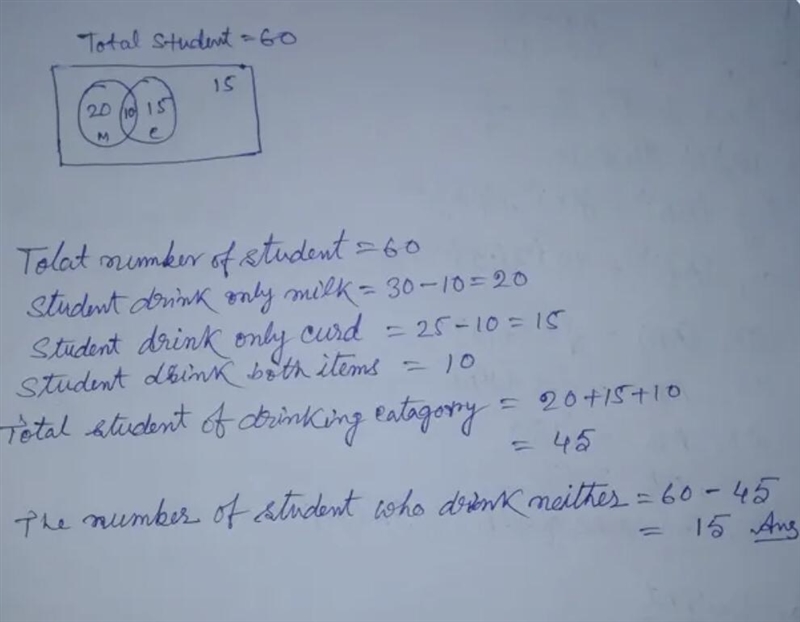 Total student = 60
15
20 10 15
M C
Tolat number of student = 60
Student drink only milk = 30 - 10 = 20
Student drink only curd = 25 - 10 = 15
Student drink both items = 10
Total student of drinking catagorry = 20 + 15 + 10
= 45
The number of student who drink neither = 60 - 45
= 15 Ans